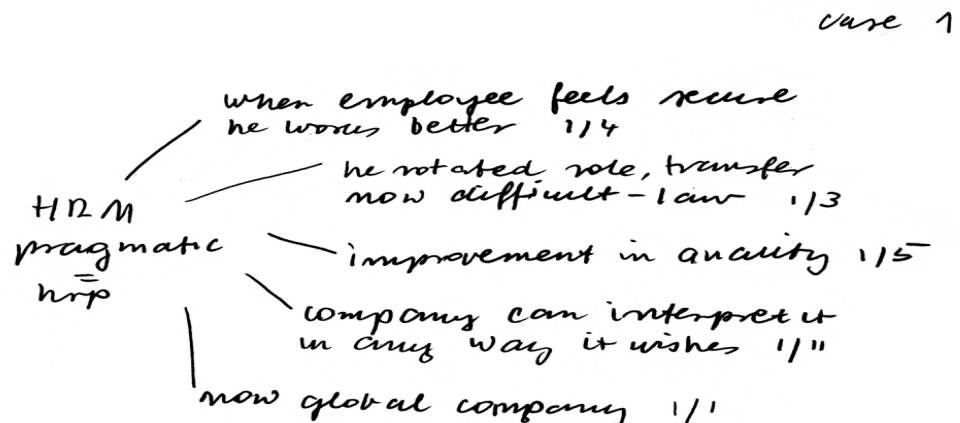 case 1
when employee feels secure
he works better 1/4
he rotated role, transfer
now difficult - law 1/3
HRM
pragmatic
=
hrp
improvement in quality 1/5
company can interpret it
in any way it wishes 1/11
now global company 1/1